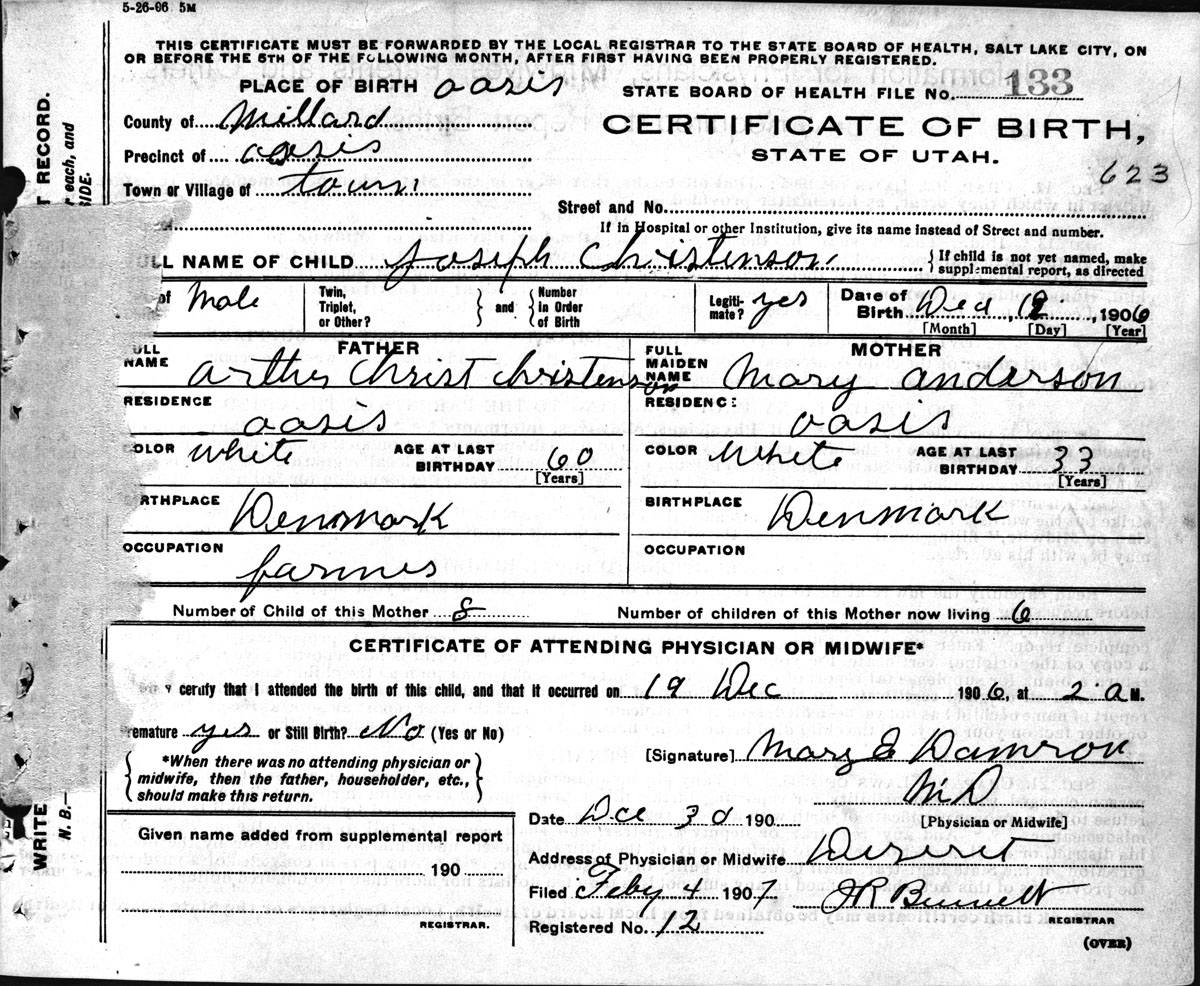 5-26-06 5M
THIS CERTIFICATE MUST BE FORWARDED BY THE LOCAL REGISTRAR TO THE STATE BOARD OF HEALTH, SALT LAKE CITY, ON
OR BEFORE THE 5TH OF THE FOLLOWING MONTH, AFTER FIRST HAVING BEEN PROPERLY REGISTERED.
PLACE OF BIRTH oasis
STATE BOARD OF HEALTH FILE No. 133
County of Millard
CERTIFICATE OF BIRTH,
Precinct of oasis
STATE OF UTAH.
623
Town or Village of town
Street and No.
If in Hospital or other Institution, give its name instead of Street and number.
LL NAME OF CHILD Joseph Christenson
If child is not yet named, make
supplemental report, as directed
of Male
Twin,
Triplet,
or Other?
and
Number
in Order
of Birth
Legiti-
mate? yes
Date of
Birth Dec, 19, 1906
[Month] [Day] [Year]
FATHER
MOTHER
ULL
NAME arther Christ Christenson
FULL
MAIDEN
NAME Mary anderson
RESIDENCE
oasis
RESIDENCE
oasis
COLOR white
AGE AT LAST
BIRTHDAY 60
[Years]
COLOR White
AGE AT LAST
BIRTHDAY 33
[Years]
IRTHPLACE
Denmark
BIRTHPLACE
Denmark
OCCUPATION
farmer
OCCUPATION
Number of Child of this Mother 8
Number of children of this Mother now living 6
CERTIFICATE OF ATTENDING PHYSICIAN OR MIDWIFE*
certify that I attended the birth of this child, and that it occurred on 19 Dec 1906, at 2 a M.
remature yes or Still Birth? No (Yes or No)
[Signature] Mary E Damron
MD
[Physician or Midwife]
*When there was no attending physician or
midwife, then the father, householder, etc.,
should make this return.
Date Dec 30 190
Given name added from supplemental report
190
REGISTRAR.
Address of Physician or Midwife Deseret
Filed Feby 4 1907
JR Bennett
REGISTRAR
Registered No. 12
(OVER)
T RECORD.
r each, and
SIDE.
WRITE
N. B.—